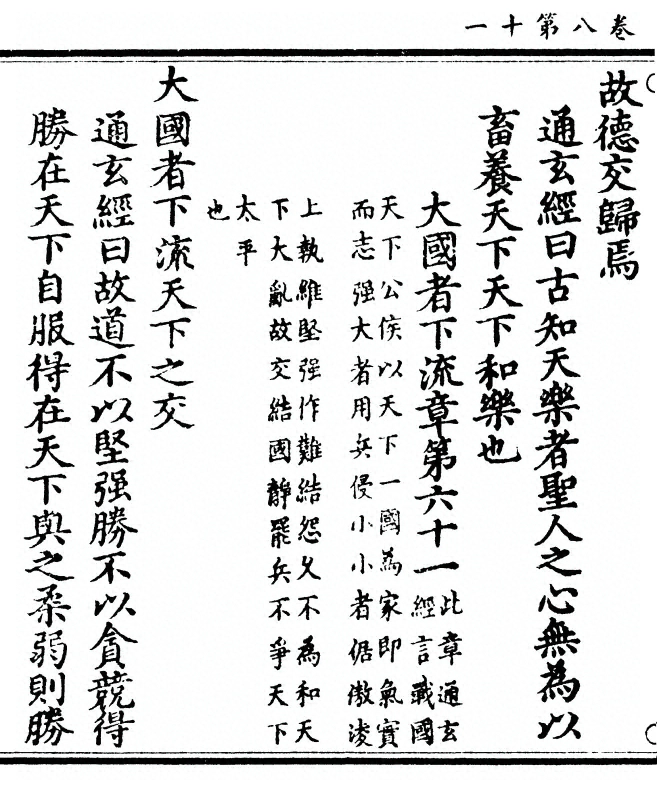 卷八第十一
故德交歸焉
通玄經曰古知天樂者聖人之心無為以
畜養天下天下和樂也
大國者下流章第六十一
此章通玄
經言國
天下公侯以天下一國為家即氣實
而志强大者用兵侵小小者倨傲淩
上執維堅强作難結怨久不為和天
下大亂故交結國靜罷兵不爭天下
太平
也
大國者下流天下之交
通玄經曰故道不以堅强勝不以貪競得
勝在天下自服得在天下與之柔弱則勝